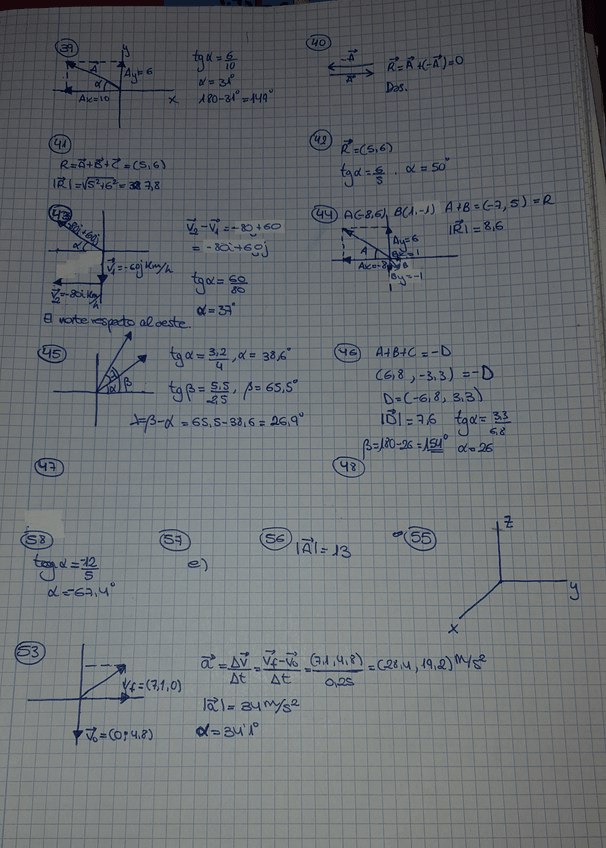 39
y
A⃗
Ay=6
α
Ax=10
x
tgα=6/10
α=31°
180-31°=149°
40
-A⃗
A⃗
R⃗=A⃗+(-A⃗)=0
41
R=a⃗+B⃗+C⃗=(5,6)
|R⃗|=√5²+6²=7,8
42
R⃗=(5,6)
tgα=6/5 . α=50°
43
-80i+60j
α
V⃗₁=-60j Km/h
V⃗₂=-80i Km/h
El norte respecto al oeste.
V⃗₂-V⃗₁=-80+60
=-80i+60j
tgα=60/80
α=37°
44
A(-8,6) B(1,-1) A+B=(-7,5)=R
|R⃗|=8,6
Ay=6
A
Bx=1
Ax=-8
B
By=-1
45
α
β
tgα=3,2/4, α=38,6°
tgβ=5,5/2,5, β=65,5°
γ=β-α=65,5-38,6=26,9°
46
A+B+C=-D
(6,8,-3,3)=-D
D=(-6,8,3,3)
|D⃗|=7,6 tgα=3,3/6,8
β=180-26=154° α=26
47
48
58
tgα=-12/5
α=-67,4°
57
e)
56
|A⃗|=13
55
z
y
x
53
V⃗f=(7,1,0)
V⃗₀=(0;4,8)
a⃗=ΔV⃗/Δt=V⃗f-V⃗₀/Δt=(7,1,4,8)/0,25=(28,4,19,2) m/s²
|a⃗|=34 m/s²
α=34'1°